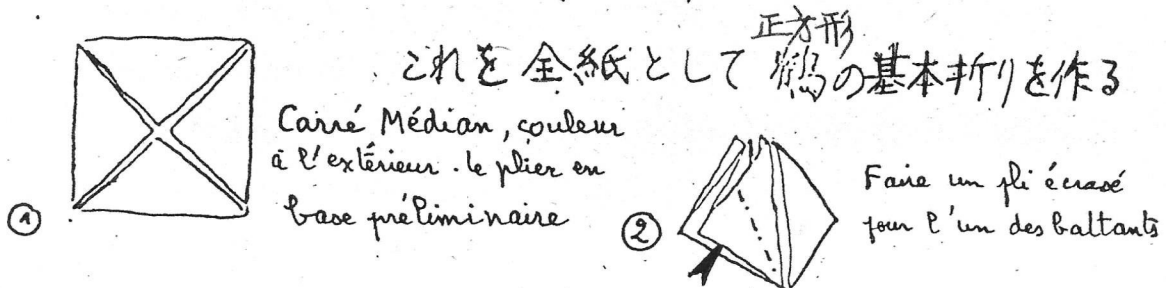 正方形
これを全紙として鶴の基本折りを作る
Carré Médian, couleur
à l'extérieur. le plier en
base préliminaire
①
②
Faire un pli écrasé
pour l'un des battants